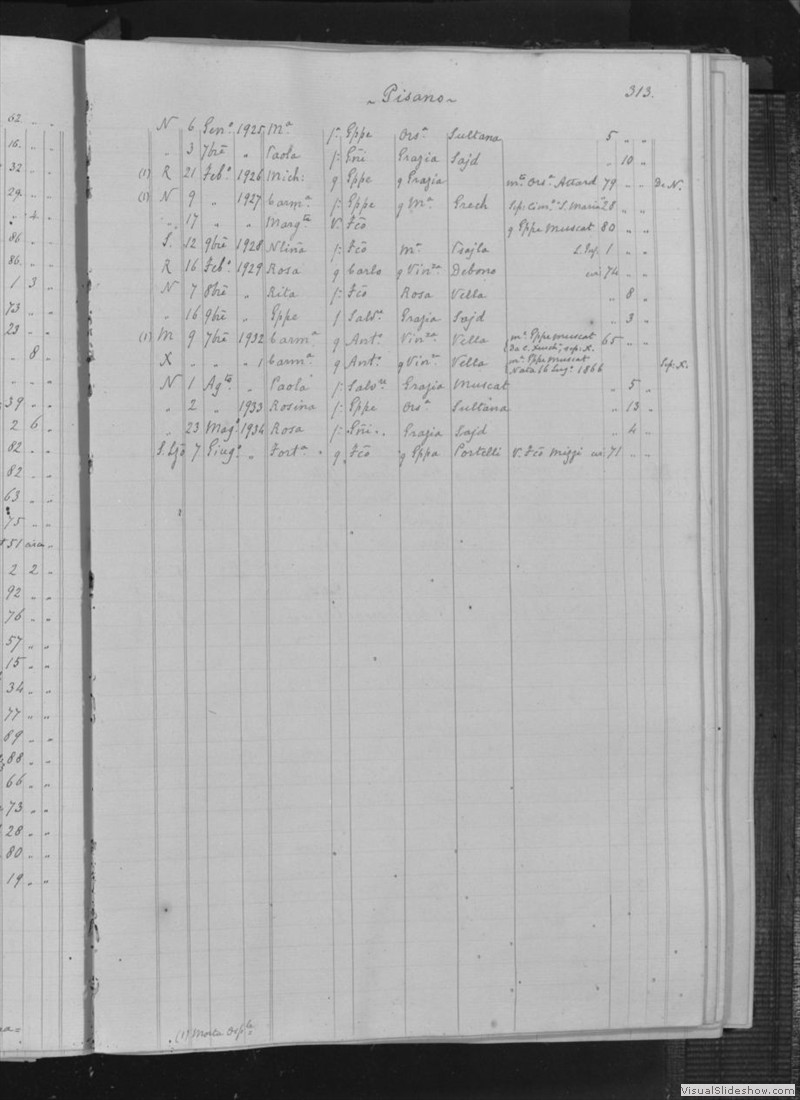 62 „ „
16 „ „
32 „ „
29 „ „
„ 4 „
86 „ „
86 „ „
1 3 „
73 „ „
23 „ „
„ 8 „
39 „ „
2 6 „
82 „ „
82 „ „
63 „ „
75 „ „
51 circa „
2 2 „
92 „ „
76 „ „
57 „ „
15 „ „
34 „ „
77 „ „
89 „ „
88 „ „
66 „ „
73 „ „
28 „ „
80 „ „
19 „ „
~ Pisano ~ 313.
N 6 Genº 1925 Mª f: Gppe Orsª Sultana 5 „ „
„ 3 7bre „ Paola f: Gñi Grazia Sajd „ 10 „
(1) R 21 Febº 1926 Mich: q Gppe q Grazia mto Orsª Attard 79 „ „ Da N.
(1) N 9 „ 1927 Carmª f: Gppe q Mª Grech Sep: Cimº S. Maria 28 „ „
„ 17 „ „ Margta V. Fco q Gppe Muscat 80 „ „
S. 12 9bre 1928 Ntiña f: Fco Mª 1 „ „
R 16 Febº 1929 Rosa q Carlo q Vinza Debono 74 „ „
N 7 8bre „ Rita f: Fco Rosa Vella „ 8 „
„ 16 9bre „ Gppe f Salvre Grazia Sajd „ 3 „
(1) M 9 7bre 1932 Carmª q Antº Vinza Vella mª Gppe Muscat 65 „ „
sep. X.
X „ „ „ Carmª q Antº q Vinza Vella mª Gppe Muscat Sep: X.
Nata 16 Lugº 1866
N 1 Agto „ Paola f: Salvre Grazia Muscat „ 5 „
„ 2 „ 1933 Rosina f: Gppe Orsª Sultana „ 13 „
„ 23 Magº 1934 Rosa f: Gñi Grazia Sajd „ 4 „
S. Ljo 7 Giugº „ Fortª q Fco q Gppa Portelli V. Fco Mizzi 71 „ „
(1) Morta Osple
VisualSlideshow.com